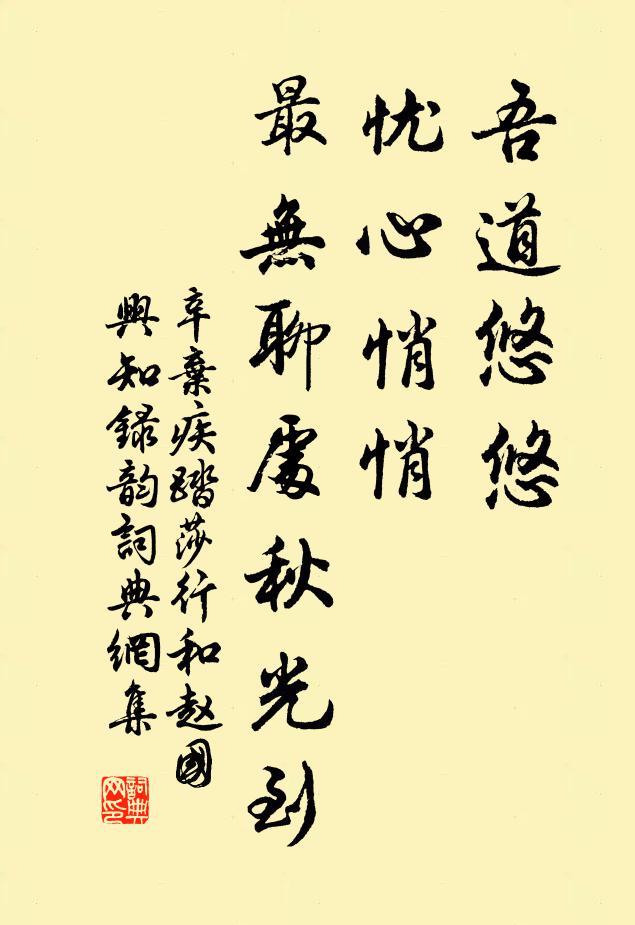 吾道悠悠
忧心悄悄
最無聊處秋光到
辛棄疾踏莎行和赵國
興知録韵詞典網集
詞典網印